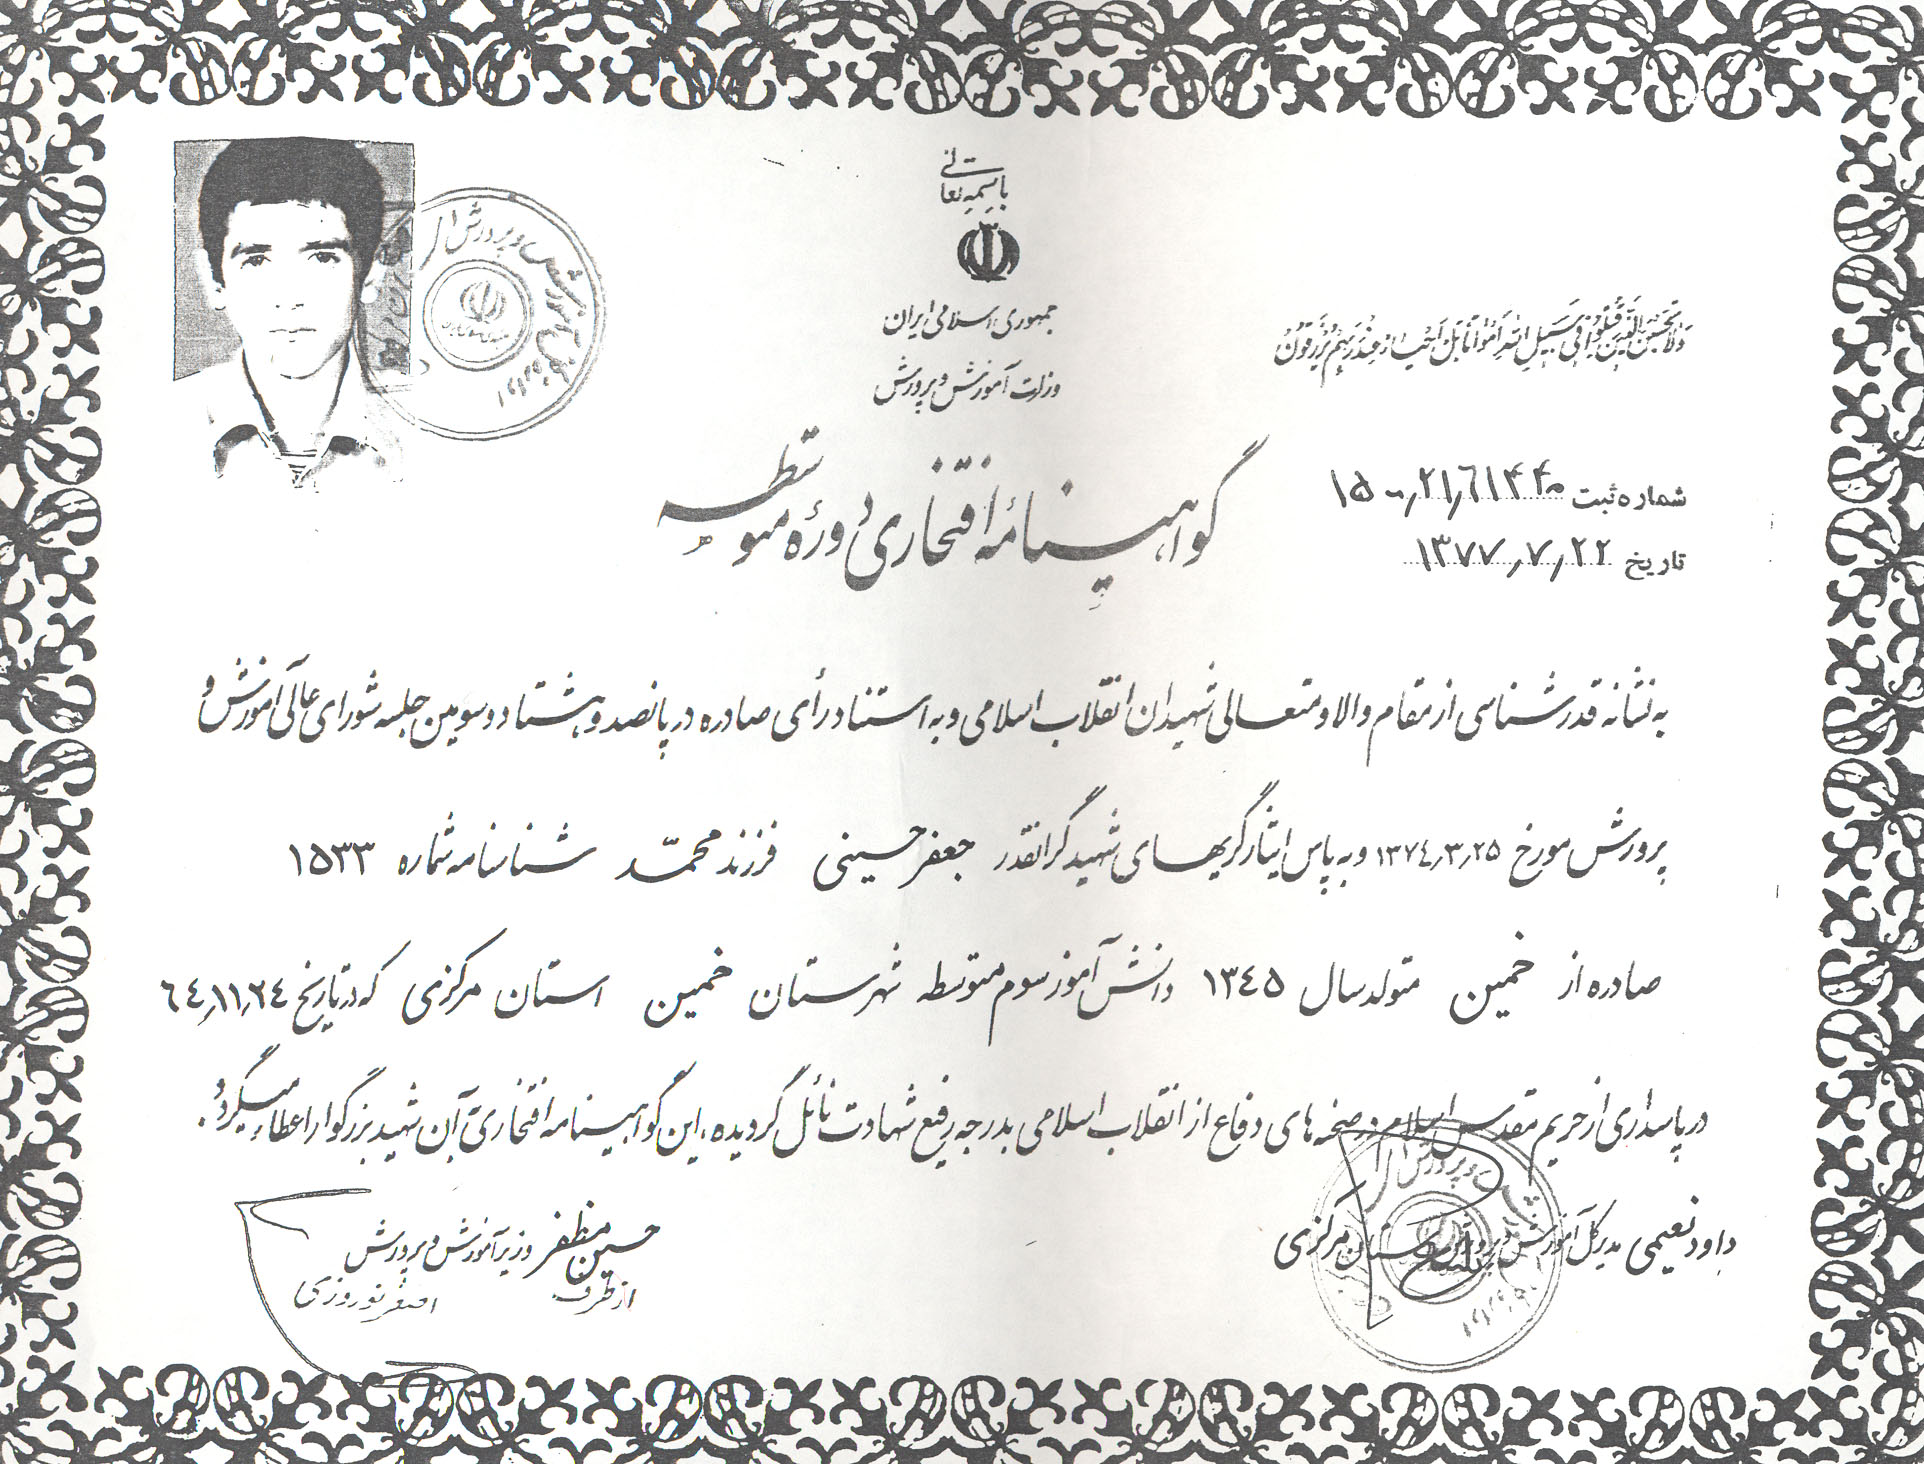 باسمه تعالی
جمهوری اسلامی ایران
وزارت آموزش و پرورش
ولا تحسبن الذین قتلوا فی سبیل الله امواتا بل احیاء عند ربهم یرزقون
گواهینامهٔ افتخاری دورهٔ متوسطه
شماره ثبت
تاریخ ۱۳۷۷٫۷٫۲۲
به نشانه قدرشناسی از مقام والا و متعالی شهیدان انقلاب اسلامی و به استناد رأی صادره در پانصد و هشتاد و سومین جلسه شورای عالی آموزش و
پرورش مورخ ۱۳۷٤٫۳٫۲۵ و به پاس ایثارگریهای شهید گرانقدر جعفر حسینی فرزند محمّد شناسنامه شماره ۱۵۳۳
صادره از خمین متولد سال ۱۳٤۵ دانش آموز سوم متوسطه شهرستان خمین استان مرکزی که در تاریخ ٦٤٫۱۱٫۲٤
در پاسداری از حریم مقدس اسلام در صحنه های دفاع از انقلاب اسلامی بدرجه رفیع شهادت نائل گردیده، این گواهینامه افتخاری به آن شهید بزرگوار اعطاء میگردد.
داود نعیمی مدیرکل آموزش و پرورش استان مرکزی
حسین مظفر وزیر آموزش و پرورش
از طرف اصغر نوروزی